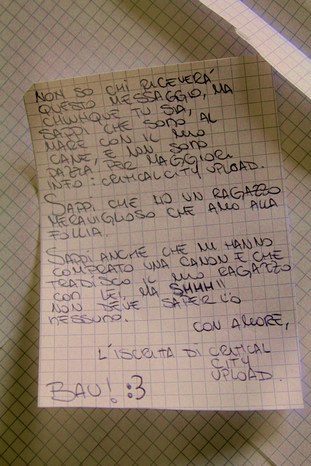 NON SO CHI RICEVERÀ
QUESTO MESSAGGIO, MA
CHIUNQUE TU SIA,
SAPPI CHE SONO AL
MARE CON IL MIO
CANE, E NON SONO
PAZZA. PER MAGGIORI
INFO: CRITICAL CITY UPLOAD.
SAPPI CHE HO UN RAGAZZO
MERAVIGLIOSO CHE AMO ALLA
FOLLIA.
SAPPI ANCHE CHE MI HANNO
COMPRATO UNA CANON E CHE
TRADISCO IL MIO RAGAZZO
CON LEI, MA SHHH!!
NON DEVE SAPERLO
NESSUNO.
CON AMORE,
L'ISCRITA DI CRITICAL
CITY
UPLOAD.
BAU! :3